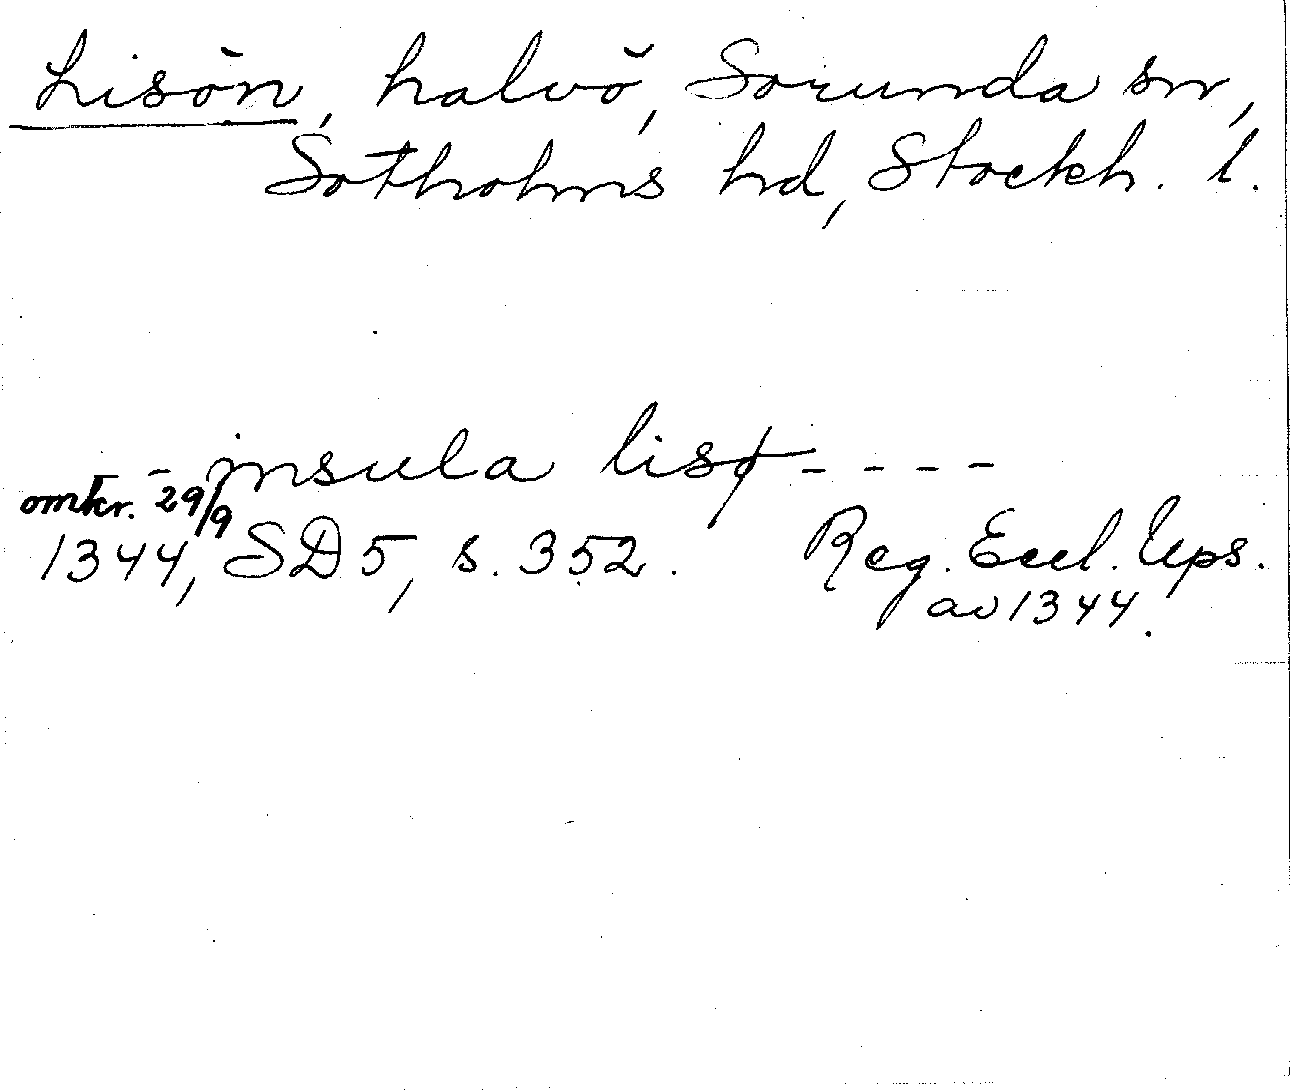 Lisön, halvö, Sorunda sn,
Sotholms hd, Stockh. l.
- - insula lisø - - - -
omkr. 29/9
1344, SD 5, s. 352. Reg. Eccl. Ups.
av 1344.